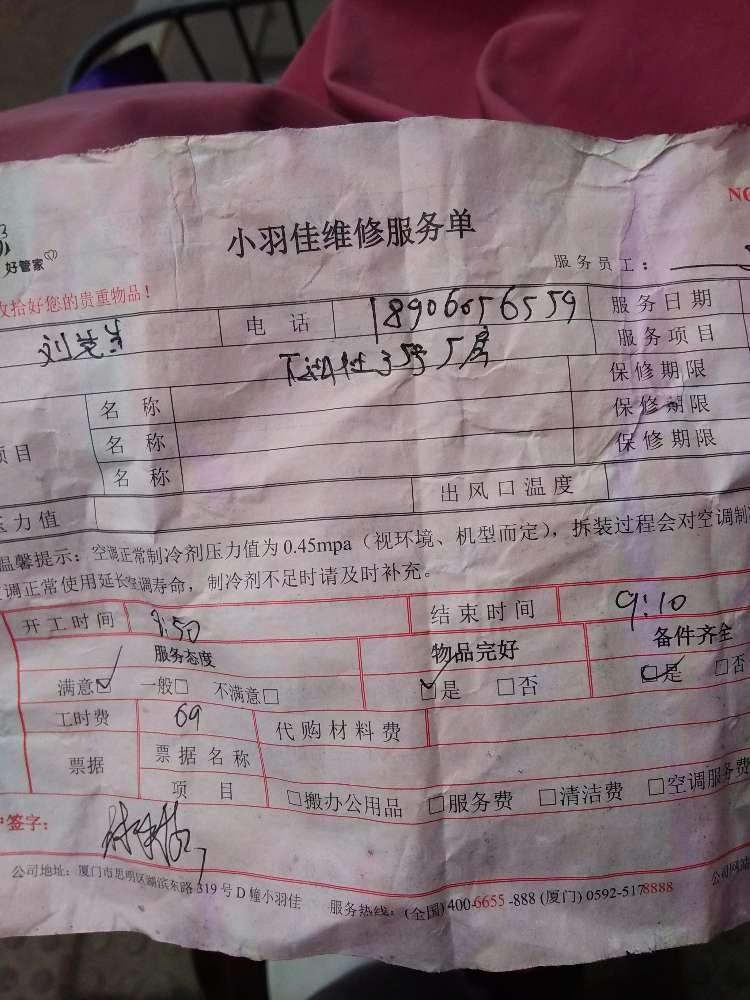 NO
小羽佳维修服务单
好管家
服务员工：
收拾好您的贵重物品！
刘先生 电话 18906056559 服务日期
3号厂房 服务项目
保修期限
名称 保修期限
项目 名称 保修期限
名称
压力值 出风口温度
温馨提示：空调正常制冷剂压力值为0.45mpa（视环境、机型而定），拆装过程会对空调制
调正常使用延长空调寿命，制冷剂不足时请及时补充。
开工时间 8:50 结束时间 9:10
服务态度 物品完好 备件齐全
满意☑ 一般□ 不满意□ ☑是 □否 ☑是 □否
工时费 69 代购材料费
票据 票据名称
项目 □搬办公用品 □服务费 □清洁费 □空调服务费
户签字：
公司地址：厦门市思明区湖滨东路319号D幢小羽佳 服务热线：(全国)400-6655-888 (厦门)0592-5178888 公司网站